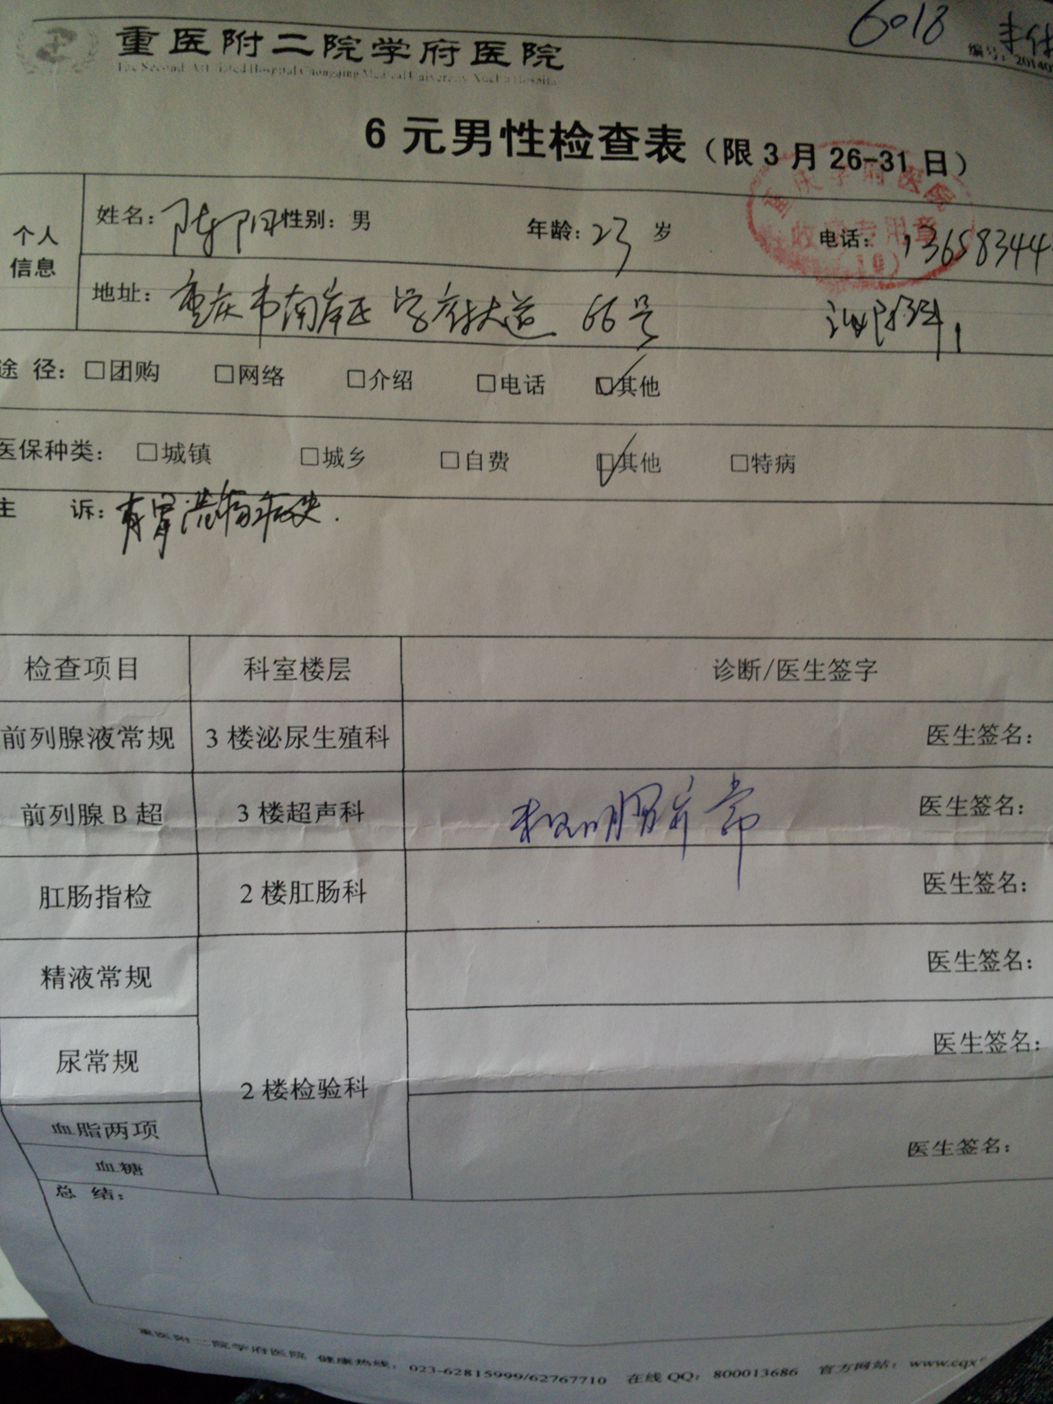 6018
重医附二院学府医院
The Second Affiliated Hospital Chongqing Medical University Xuefu Hospital
编号：20140
6 元男性检查表（限 3 月 26-31 日）
个人信息
姓名：陈阳 性别：男 年龄：23 岁 电话：13658344
重庆学府医院
收费专用章
地址：重庆市南岸区学府大道 66号
途 径：□团购 □网络 □介绍 □电话 ☑其他
医保种类：□城镇 □城乡 □自费 ☑其他 □特病
主 诉：有胃溃疡病史.
检查项目 科室楼层 诊断/医生签字
前列腺液常规 3 楼泌尿生殖科 医生签名：
前列腺 B 超 3 楼超声科 医生签名：
肛肠指检 2 楼肛肠科 医生签名：
精液常规 医生签名：
尿常规 2 楼检验科 医生签名：
血脂两项 医生签名：
血糖
总 结：
重医附二院学府医院 健康热线：023-62815999/62767710 在线 QQ：800013686 官方网站：www.cqx